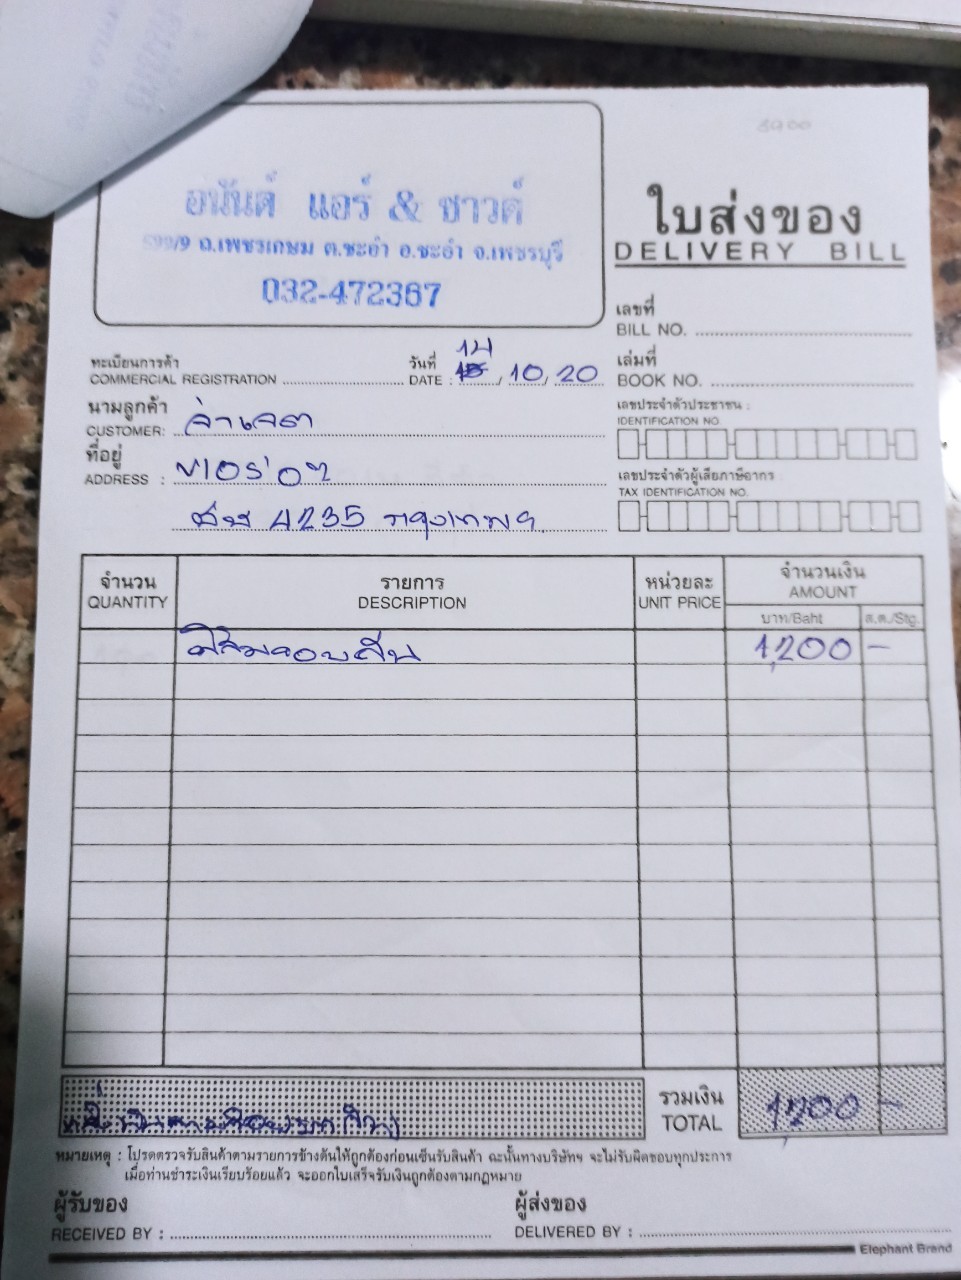 3900
อนันต์ แอร์ & ซาวด์
599/9 ถ.เพชรเกษม ต.ชะอำ อ.ชะอำ จ.เพชรบุรี
032-472367
ใบส่งของ
DELIVERY BILL
เลขที่
BILL NO.
เล่มที่
BOOK NO.
ทะเบียนการค้า
COMMERCIAL REGISTRATION
วันที่ 14
DATE : / 10 / 20
นามลูกค้า
CUSTOMER: จ่าเจตา
เลขประจำตัวประชาชน :
IDENTIFICATION NO.
ที่อยู่
ADDRESS :
เลขประจำตัวผู้เสียภาษีอากร :
TAX IDENTIFICATION NO.
4235 กรุงเทพฯ
จำนวน
QUANTITY
รายการ
DESCRIPTION
หน่วยละ
UNIT PRICE
จำนวนเงิน
AMOUNT
บาท/Baht ส.ต./Stg.
1,200 –
รวมเงิน
TOTAL
1,200 –
หมายเหตุ : โปรดตรวจรับสินค้าตามรายการข้างต้นให้ถูกต้องก่อนเซ็นรับสินค้า ฉะนั้นทางบริษัทฯ จะไม่รับผิดชอบทุกประการ
เมื่อท่านชำระเงินเรียบร้อยแล้ว จะออกใบเสร็จรับเงินถูกต้องตามกฎหมาย
ผู้รับของ
RECEIVED BY :
ผู้ส่งของ
DELIVERED BY :
Elephant Brand